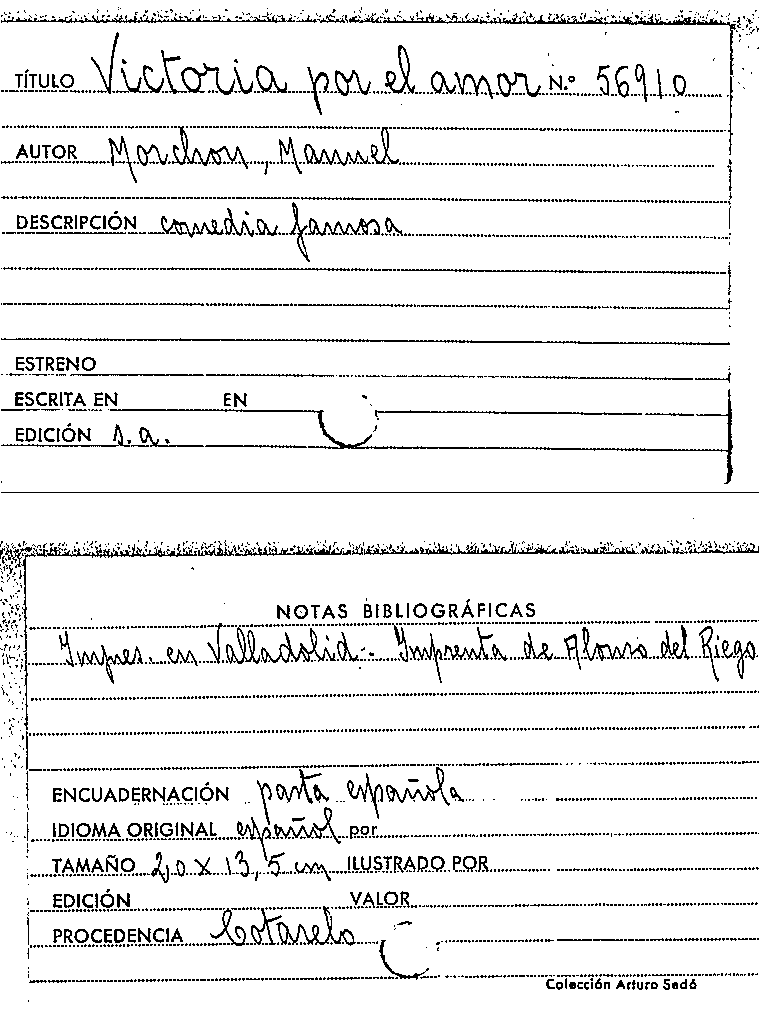 TÍTULO Victoria por el amor N.º 56910
AUTOR Morchon, Manuel
DESCRIPCIÓN comedia famosa
ESTRENO
ESCRITA EN EN
EDICIÓN s.a.
NOTAS BIBLIOGRÁFICAS
Impres. en Valladolid.- Imprenta de Alonso del Riego
ENCUADERNACIÓN pasta española
IDIOMA ORIGINAL español por
TAMAÑO 20 x 13,5 cm ILUSTRADO POR
EDICIÓN VALOR
PROCEDENCIA Cotarelo
Colección Arturo Sedó